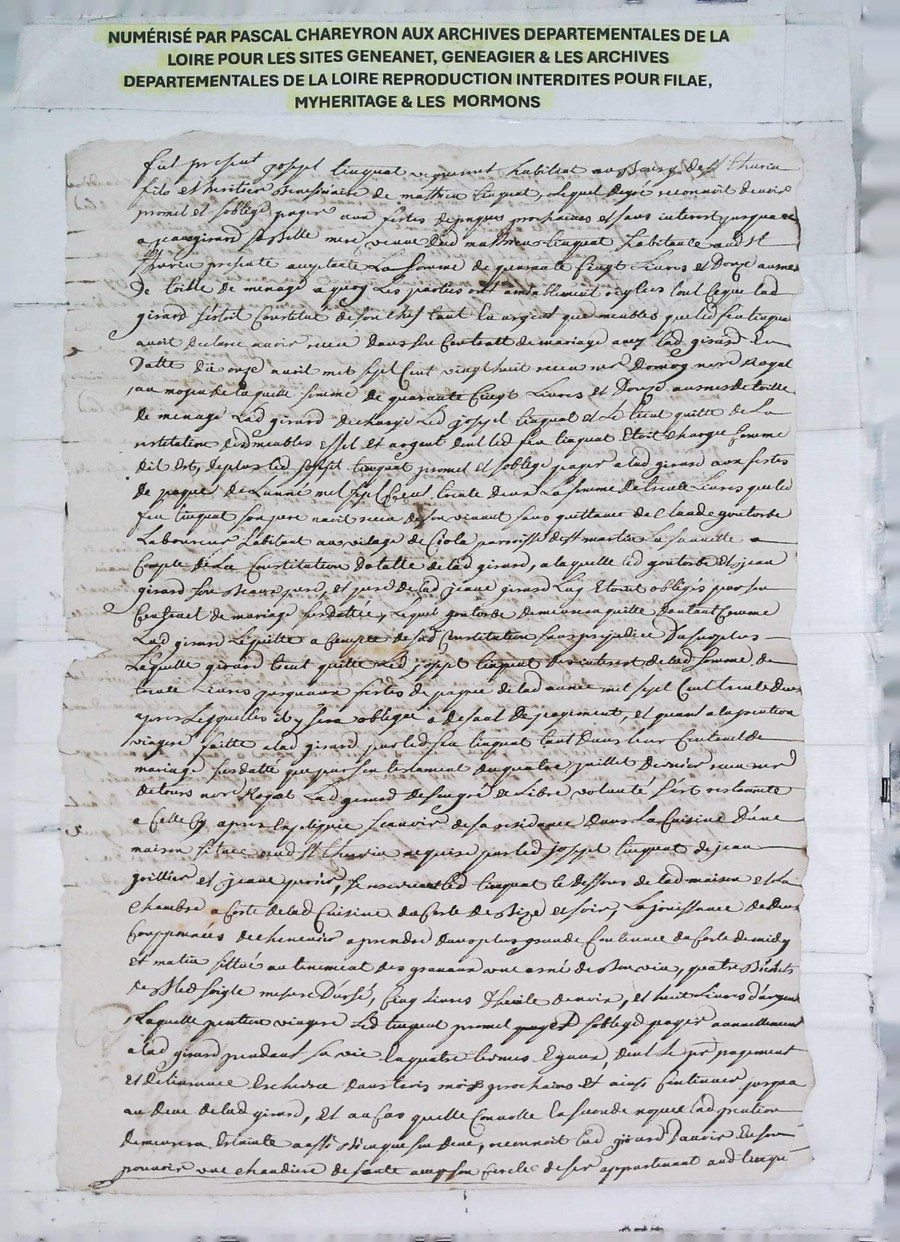 NUMÉRISÉ PAR PASCAL CHAREYRON AUX ARCHIVES DEPARTEMENTALES DE LA
LOIRE POUR LES SITES GENEANET, GENEAGIER & LES ARCHIVES
DEPARTEMENTALES DE LA LOIRE REPRODUCTION INTERDITES POUR FILAE,
MYHERITAGE & LES MORMONS
fut present joseph tinquat habitant au Bourg de St Thurin
fils et heritier de mathieu tinquat, lequel de gré reconnoit devoir
promet et soblige payer aux festes de paques prochaines et sans interest jusqua ce
a jeanne girard sa mere veuve dud mathieu tinquat habitante aud St
Thurin presente acceptante La somme de quarante Cinq Livres et Douze aunes
De toille de menage a quoy Les parties ont amiablement reglées tout Ce que lad
girard sestoit Constitué de son chef tant En argent que meubles que led feu tinquat
avoit declaré avoir receu dans son Contrat de mariage avec lad girard En
Datte du onze avril mil sept Cent vingt huit receu me nore Royal
au moyen de laquelle somme de quarante Cinq Livres et Douze aunes de toille
de menage Lad girard decharge Led joseph tinquat et Le tient quitte de La
restitution desd meubles effet et argent dont led feu tinquat Etoit chargé Comme
dit est, de plus led joseph tinquat promet et soblige payer a lad girard aux festes
de paques de Lannée mil sept Cent trente deux La somme de trente Livres que led
feu tinquat son pere avoit receu de son vivant sous quittance de Claude goutorbe
Laboureur habitant au vilage de parroisse de St martin La sauveté a
Compte de La Constitution dotalle de lad girard, a laquelle led goutorbe et jean
girard son Beau pere, et pere de lad jeanne girard Luy Etoient obligés par son
Contract de mariage susdatté, lequel goutorbe demeure quitte Dautant Comme
Lad girard Lequitte a Compte de sad Constitution sans prejudice Du surplus
Laquelle girard tient quitte Led joseph tinquat des interest de lad somme de
trente Livres jusquaux festes de paques de lad année mil sept Cent trente deux
apres Lesquelles il y sera obligé a defaut de payement, et quant a la pension
viagere faitte a lad girard par led feu tinquat tant Dans leur Contract de
mariage susdatté que par son testament du quatre juillet dernier receu me
detours nore Royal Lad girard de son gré et Libre volonté s'est restrainte
a Celle Cy apres Expliquée sçavoir de sa residance Dans La Cuisine D'une
maison scituée aud St Thurin acquise par led joseph tinquat de jean
grillier et jeanne, se reservant led tinquat le dessous de lad maison et La
chambre a Coste de lad Cuisine du Coste de Bize et soir, La jouissance de deux
Coupponnées de chenevier a prendre dans plus grande Contenue du Coste de midy
et matin scitué au tenement des une asnée de Bon vin, quatre Bichets
de Bled seigle mesure D'urfé, Cinq Livres d'huile de noix, et huit Livres d'argent
Laquelle pention viagere Led tinquat promet et soblige payer annuellement
a lad girard pendant sa vie En quatre termes Egaux, dont le pr payement
et delivrance Eschera dans trois mois prochains et ainsi Continuer jusqua
au deces de lad girard, Et au cas quelle Convolle En seconde nopces lad pention
demeurera Eteinte aussi Bien que son deces, reconnoit lad girard D'avoir En son
pouvoir une chaudiere de fonte avec son Cercle de fer appartenant aud tinquat